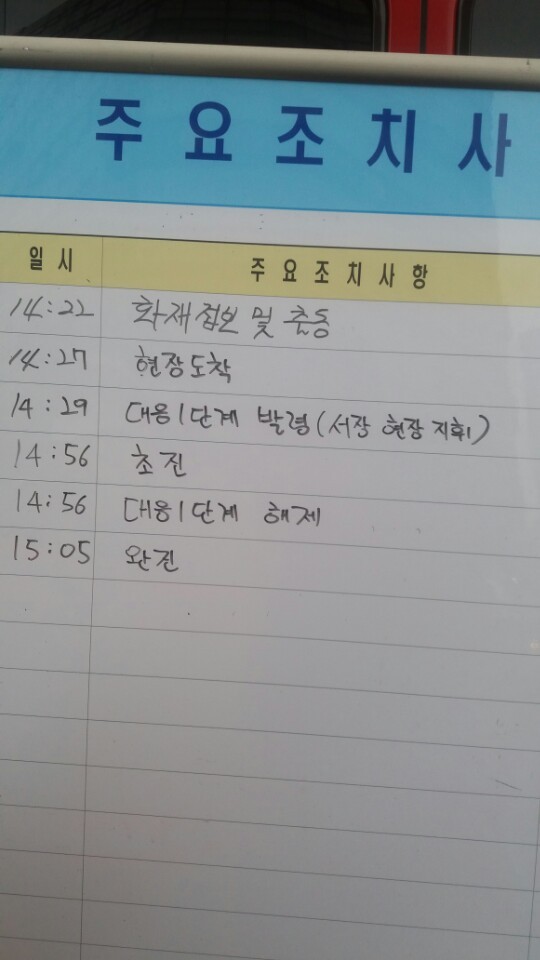 주요조치사
일시 주요조치사항
14:22 화재접보 및 출동
14:27 현장도착
14:29 대응1단계 발령(서장 현장 지휘)
14:56 초진
14:56 대응1단계 해제
15:05 완진